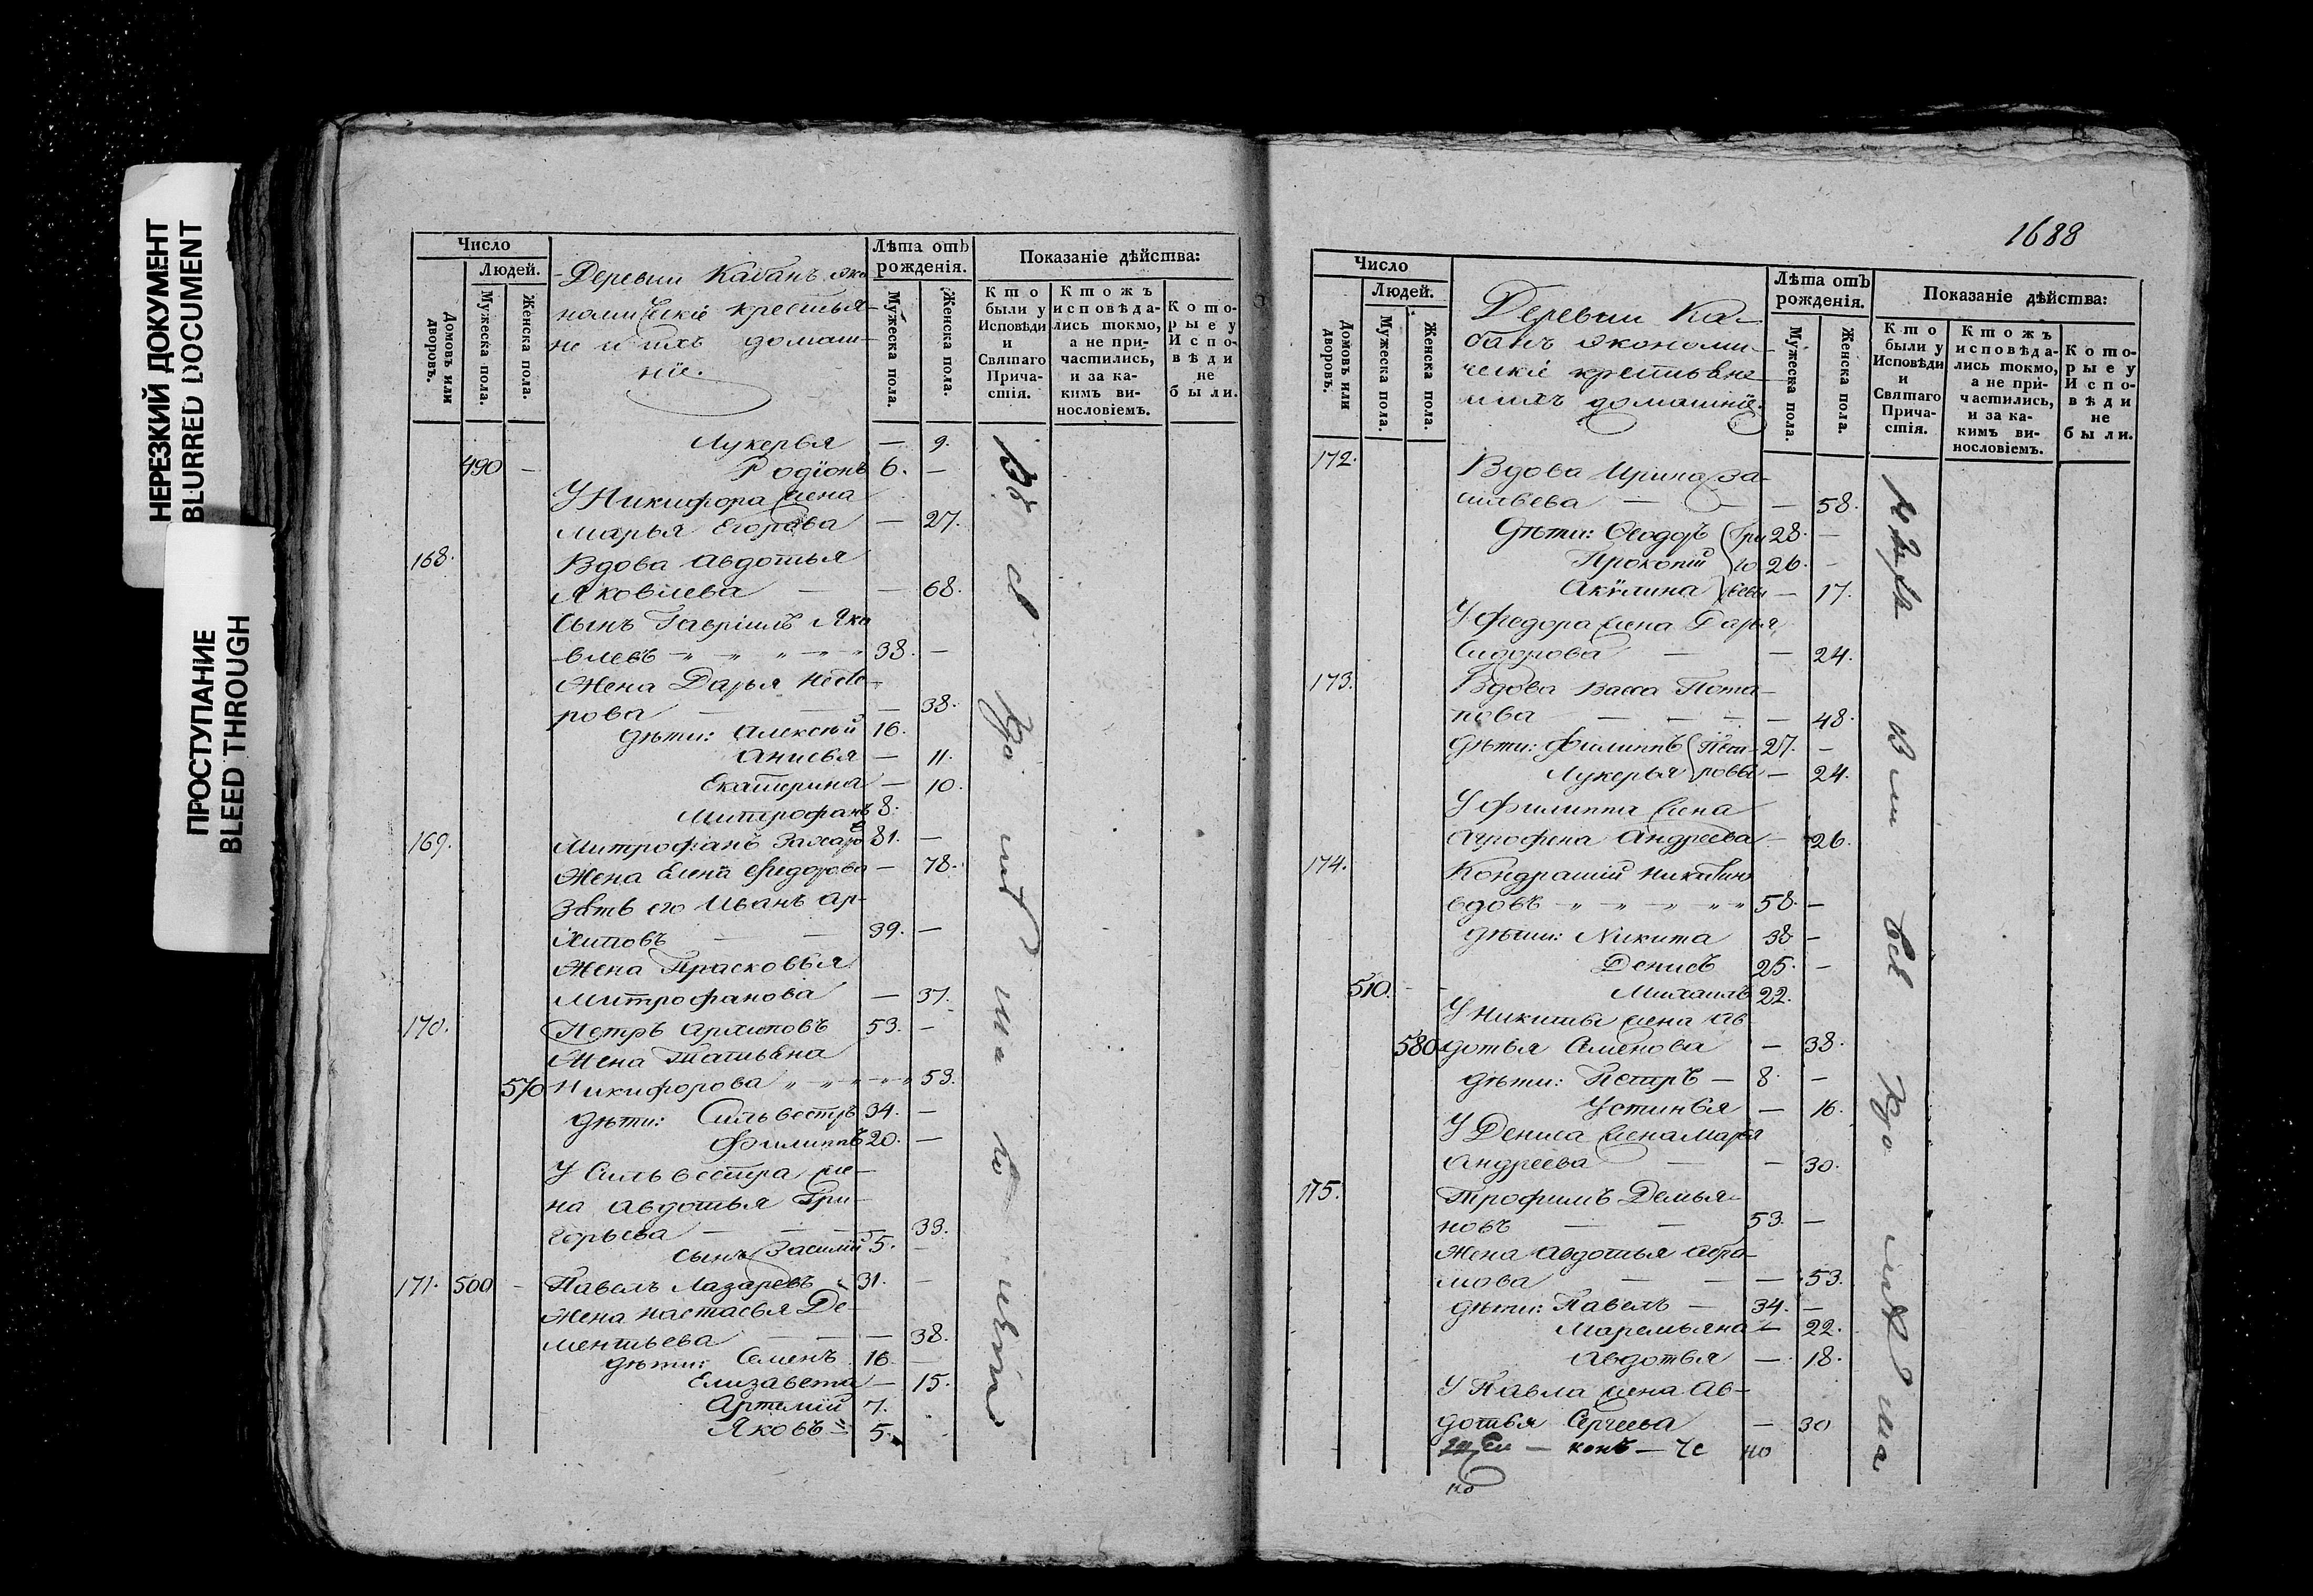 НЕРЕЗКИЙ ДОКУМЕНТ
BLURRED DOCUMENT
ПРОСТУПАНИЕ
BLEED THROUGH
Число
Людей.
Домовъ или дворовъ.
Мужеска пола.
Женска пола.
Деревни Кабанъ эко
номическіе крестья-
не и ихъ домаш-
ніе.
Лѣта отъ
рожденія.
Мужеска пола.
Женска пола.
Показаніе дѣйства:
Кто
были у
Исповѣди
и
Святаго
Прича-
стія.
Ктожъ
исповѣда-
лись токмо,
а не при-
частились,
и за ка-
кимъ ви-
нословіемъ.
Кото-
рые у
Испо-
вѣди
не
были.
Лукерья — 9.
490 — Родіонъ 6. —
У Никифора жена
Марья Егорова — 27.
168. Вдова Авдотья
Яковлева — — 68.
Сынъ Гавріилъ Яко
влевъ 38. —
Жена Дарья Несте-
рова — — — 38.
Дѣти: Алексѣй 16.
Анисья — 11.
Екатерина — 10.
Митрофанъ 8.
169. Митрофанъ Захаро 81. —
Жена Елена Федорова — 78.
Зять его Иванъ Ар-
хиповъ — — 39. —
Жена Прасковья
Митрофанова — 37.
170. Петръ Архиповъ 53. —
Жена Татьяна
570 Никифорова 53.
Дѣти: Сильвестръ 34. —
Филиппъ 20. —
У Сильвестра же-
на Авдотья Гри-
горьева — — — 33.
Сынъ Василій 5. —
171. 500 — Павелъ Лазаревъ 31. —
Жена Настасья Де-
ментьева — — — 38.
Дѣти: Семенъ 16. —
Елизавета — 15.
Артемій 7.
Яковъ 5.
1688
Число
Людей.
Домовъ или дворовъ.
Мужеска пола.
Женска пола.
Деревни Ка-
банъ экономи-
ческіе крестьяне
и ихъ домашніе.
Лѣта отъ
рожденія.
Мужеска пола.
Женска пола.
Показаніе дѣйства:
Кто
были у
Исповѣди
и
Святаго
Прича-
стія.
Ктожъ
исповѣда-
лись токмо,
а не при-
частились,
и за ка-
кимъ ви-
нословіемъ.
Кото-
рые у
Испо-
вѣди
не
были.
172. Вдова Ирина Ва-
сильева — — 58.
Дѣти: Ѳеодоръ Гри 28. —
Прокопій го 26. —
Акулина рьевы — 17.
У Федора жена Дарья
Сидорова — — 24.
173. Вдова Васса Пота-
пова — — — — 48.
Дѣти: Филиппъ Пет- 27. —
Лукерья ровы — 24.
У Филиппа жена
Агрофена Андреева — 26.
174. Кондратій Никитинъ
вдовъ 58. —
Дѣти: Никита 38 —
Денисъ 25. —
510. Михаилъ 22.
У Никиты жена Ав
580 дотья Семенова — 38.
Дѣти: Петръ — 8. —
Устинья — 16.
У Дениса жена Марья
Андреева — — 30.
175. Трофимъ Демья-
новъ — — 53. —
Жена Авдотья Абра-
мова — — — 53.
Дѣти: Павелъ — 34. —
Маремьяна — 22.
Авдотья — 18.
У Павла жена Ав-
дотья Сергеева — 30